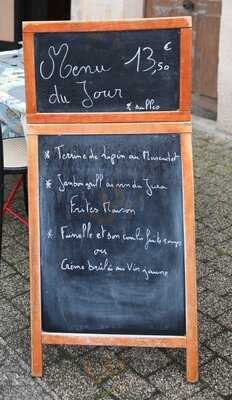 Menu 13,50 €
du Jour
* Terrine de lapin au Muscadet
* Jambon grill au vin du Jura
Frites Maison
* Faisselle et son coulis fruits rouges
ou
Crème brûlée au Vin jaune